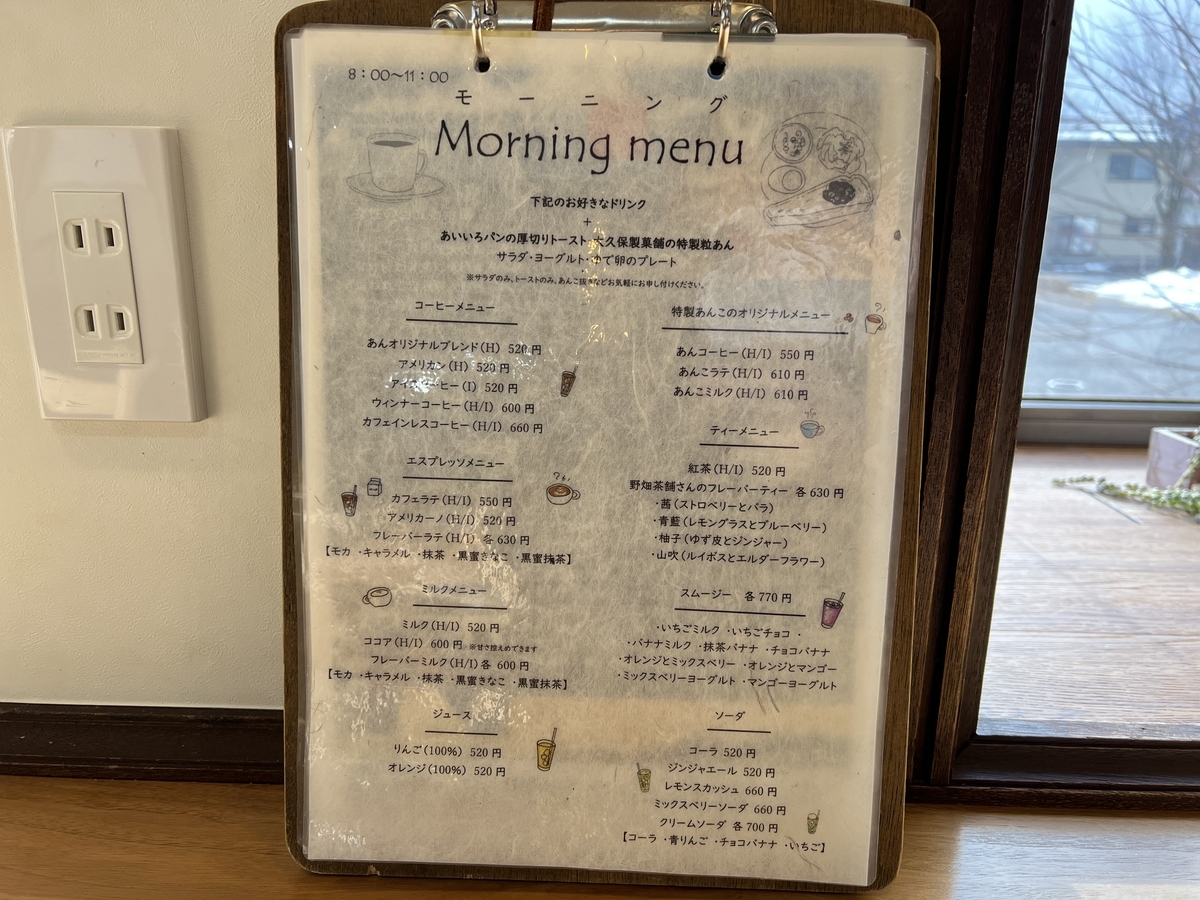 8：00～11：00
モーニング
Morning menu
下記のお好きなドリンク
+
あいいろパンの厚切りトースト・大久保製菓舗の特製粒あん
サラダ・ヨーグルト・ゆで卵のプレート
※サラダのみ、トーストのみ、あんこ抜きなどお気軽にお申し付けください。
コーヒーメニュー
あんオリジナルブレンド(H) 520円
アメリカン(H) 520円
アイスコーヒー(I) 520円
ウィンナーコーヒー(H/I) 600円
カフェインレスコーヒー(H/I) 660円
エスプレッソメニュー
カフェラテ(H/I) 550円
アメリカーノ(H/I) 520円
フレーバーラテ(H/I) 各630円
【モカ ・キャラメル ・抹茶 ・黒蜜きなこ ・黒蜜抹茶】
ミルクメニュー
ミルク(H/I) 520円
ココア(H/I) 600円 ※甘さ控えめできます
フレーバーミルク(H/I)各 600円
【モカ ・キャラメル ・抹茶 ・黒蜜きなこ ・黒蜜抹茶】
ジュース
りんご(100%) 520円
オレンジ(100%) 520円
特製あんこのオリジナルメニュー
あんコーヒー(H/I) 550円
あんこラテ(H/I) 610円
あんこミルク(H/I) 610円
ティーメニュー
紅茶(H/I) 520円
野畑茶舗さんのフレーバーティー 各630円
・茜(ストロベリーとバラ)
・青藍(レモングラスとブルーベリー)
・柚子(ゆず皮とジンジャー)
・山吹(ルイボスとエルダーフラワー)
スムージー 各770円
・いちごミルク ・いちごチョコ ・
・バナナミルク ・抹茶バナナ ・チョコバナナ
・オレンジとミックスベリー ・オレンジとマンゴー
・ミックスベリーヨーグルト ・マンゴーヨーグルト
ソーダ
コーラ 520円
ジンジャエール 520円
レモンスカッシュ 660円
ミックスベリーソーダ 660円
クリームソーダ 各700円
【コーラ ・青りんご ・チョコバナナ ・いちご】